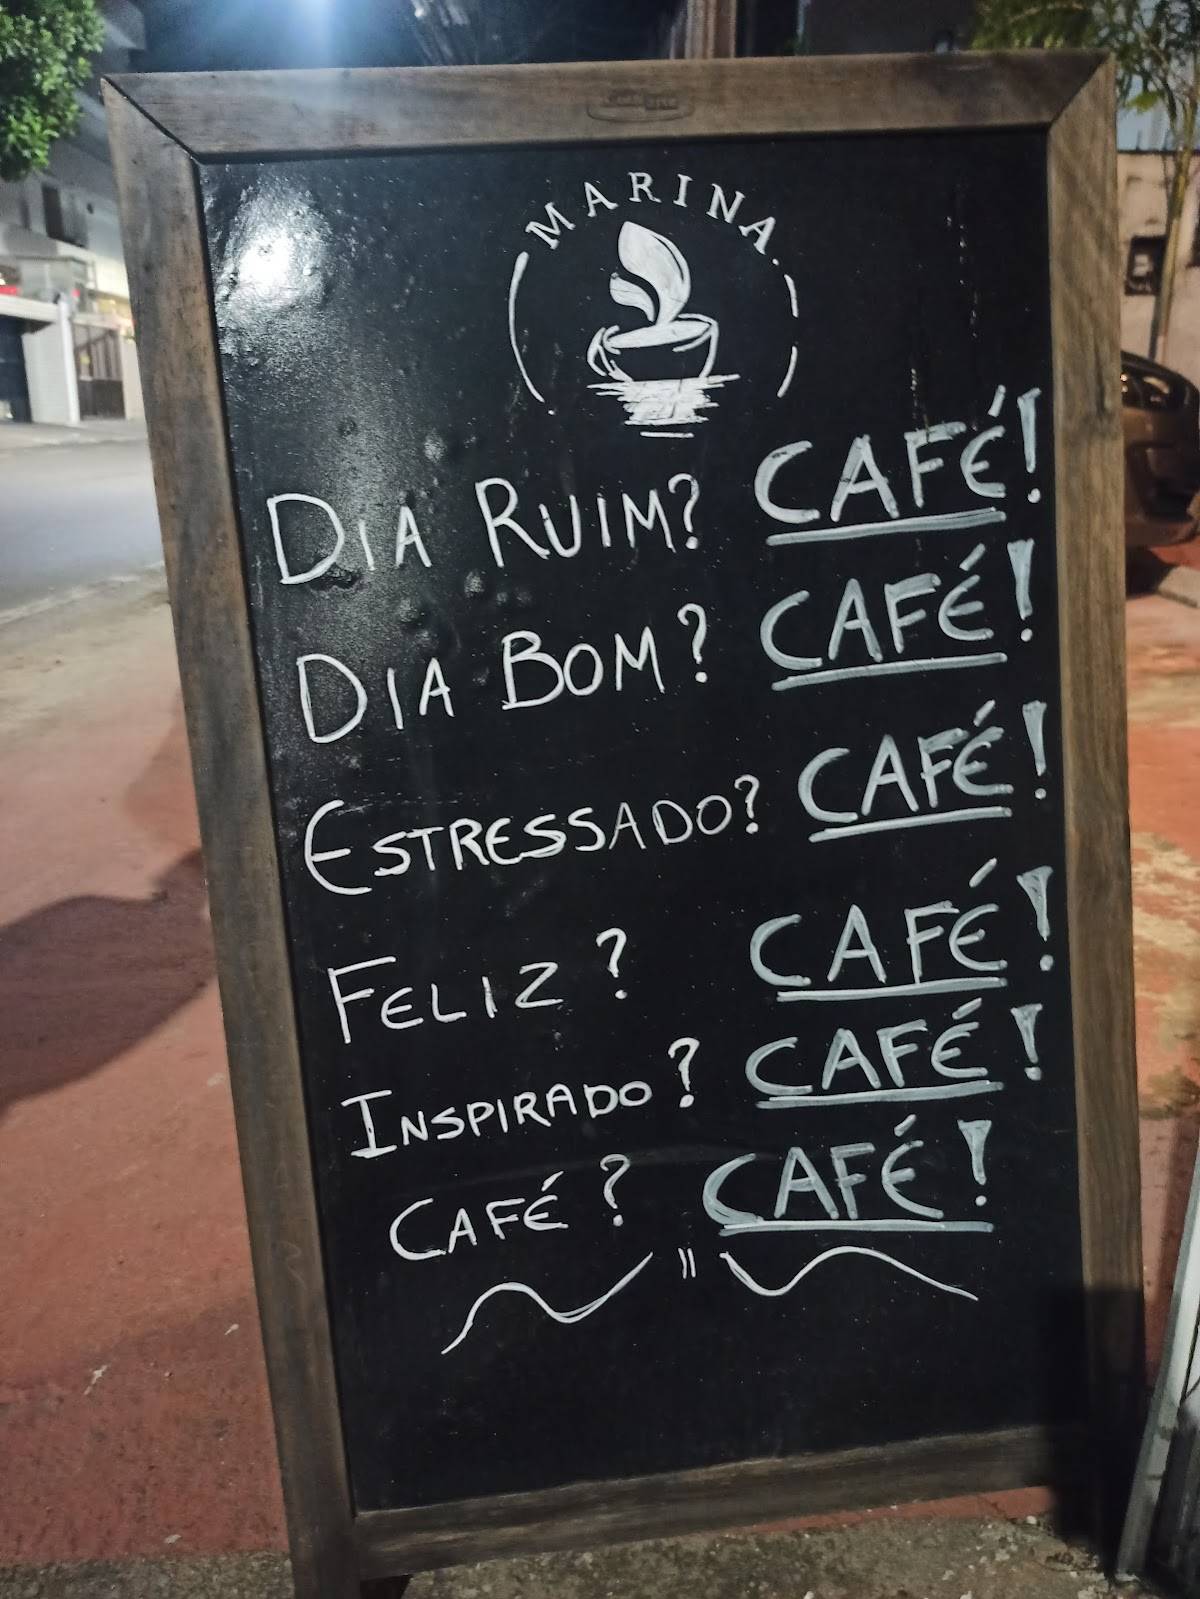 MARINA
DIA RUIM? CAFÉ!
DIA BOM? CAFÉ!
ESTRESSADO? CAFÉ!
FELIZ? CAFÉ!
INSPIRADO? CAFÉ!
CAFÉ? CAFÉ!